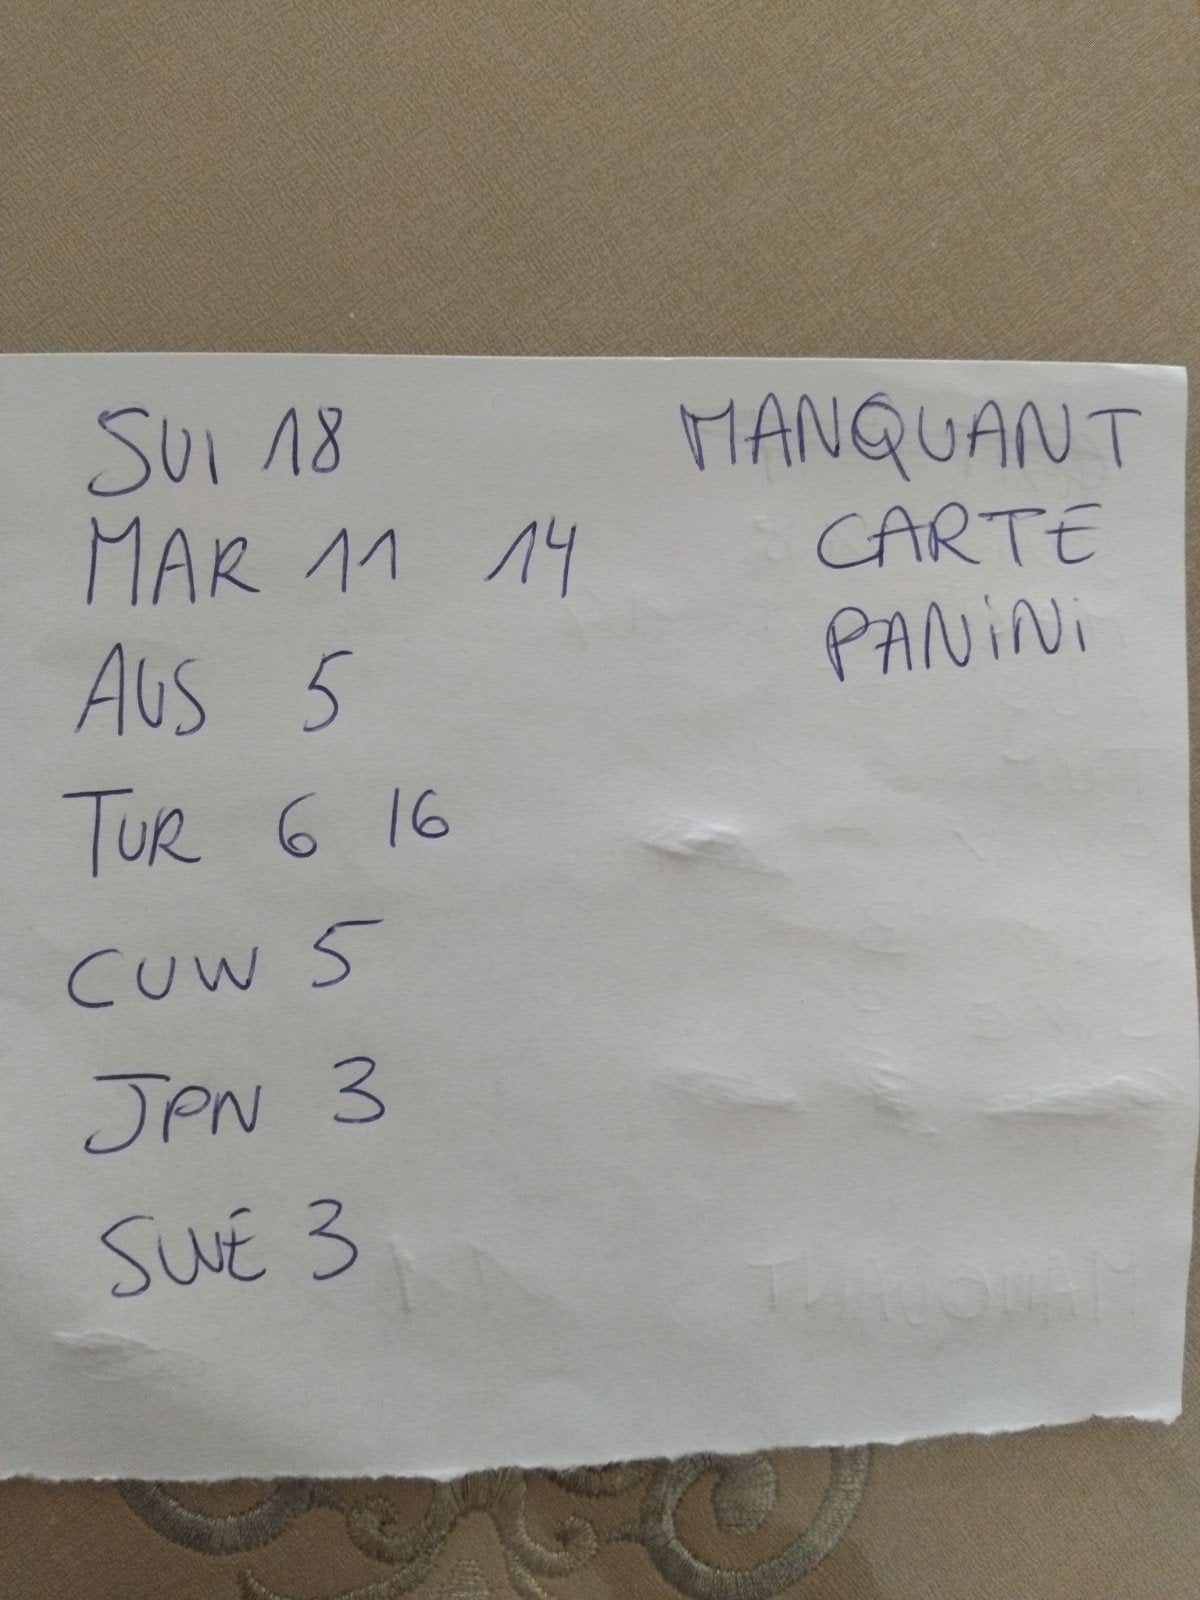 SUI 18
MAR 11 14
AUS 5
TUR 6 16
CUW 5
JPN 3
SWE 3
MANQUANT
CARTE
PANiNi